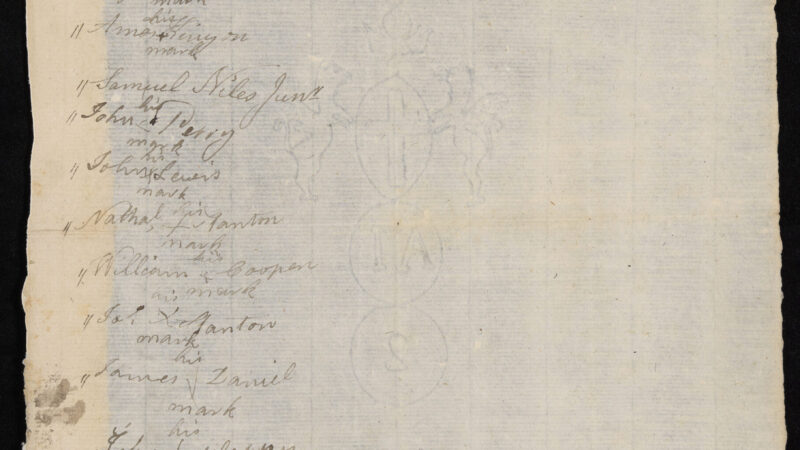 mark
his
" Amos Kenyon
mark
" Samuel Niles Junr
his
" John Perry
mark
his
" John Lewis
mark
his
" Nathal. + Stanton
mark
his
" William x Cooper
mark
his
" Jos. X Stanton
mark
his
" James Daniel
mark
his